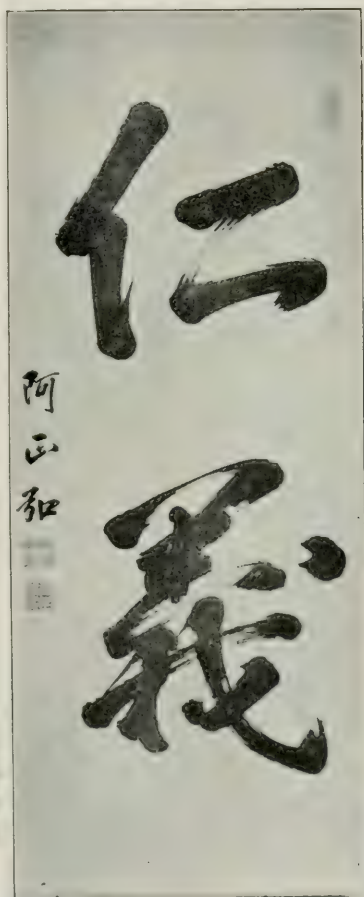 仁義
阿正弘